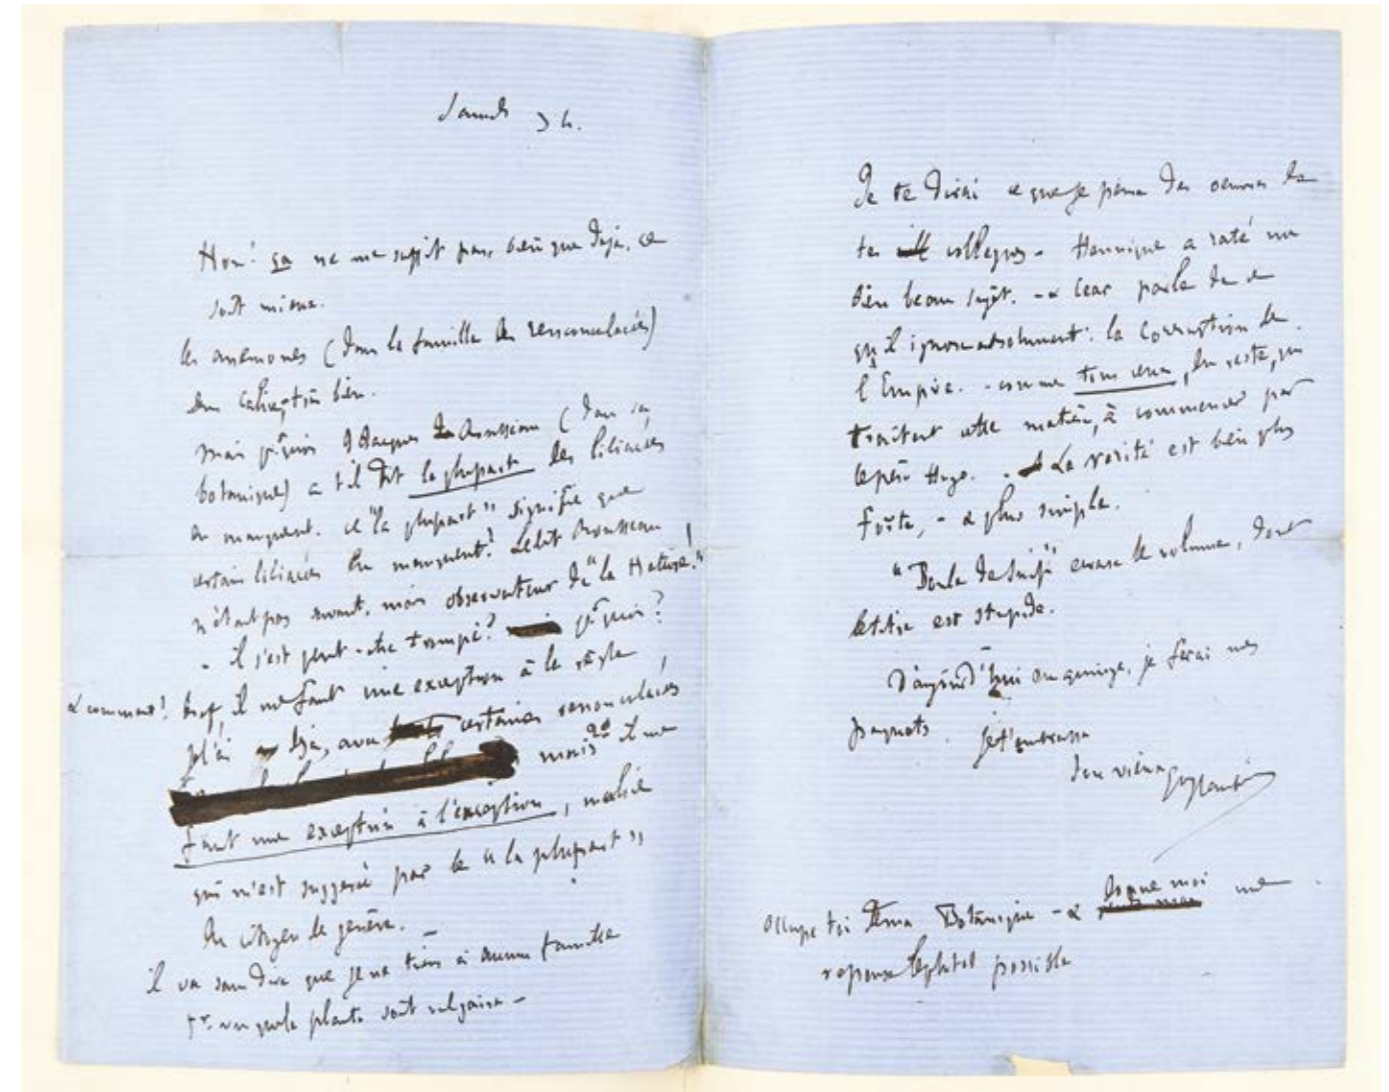 Samedi 3 h.
Non! ça ne me suffit pas, bien que déjà, ce
soit mieux.
les anémones (dans la famille des renonculacées)
calice, très bien.
mais pr quoi J Jacques Rousseau (dans sa
botanique) a t-il dit la plupart des liliacées
en manquent. ce "la plupart" signifie que
certain liliacées en manquent! Ledit Rousseau
n'était pas savant, mais observateur de "la Nature!"
- il s'est peut-être trompé? pr quoi?
& comment! bref, il me faut une exception à la règle!
je l'ai déjà, avec certaines renonculacées
mais 2° il me
faut une exception à l'exception, malice
qui m'est suggérée par le "la plupart"
du citoyen de genève.
il va sans dire que je ne tiens à aucune famille
pr vu que la plante soit vulgaire -
Je te dirai ce que je pense des oeuvres de
tes collègues - Hennique a raté un
bien beau sujet. - & Cear parle de ce
qu'il ignore absolument: la corruption de
l'Empire. - comme tous ceux, du reste, qui
traitent cette matière, à commencer par
le père Hugo. - La vérité est bien plus
forte, - & plus simple.
"Boule de Suif" écrase le volume, dont
le titre est stupide.
D'aujourd'hui en quinze, je ferai mes
paquets. je t'embrasse
Ton vieux
Gve Flaubert
occupe toi de ma Botanique - & donne moi une
réponse le plus tot possible